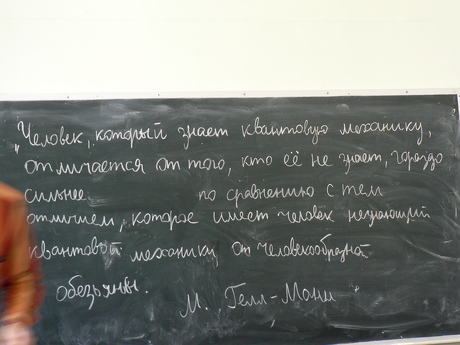 "Человек, который знает квантовую механику,
отличается от того, кто её не знает, гораздо
сильнее по сравнению с тем
отличием, которое имеет человек незнающий
квантовой механики от человекообразной
обезьяны.
М. Гелл-Манн